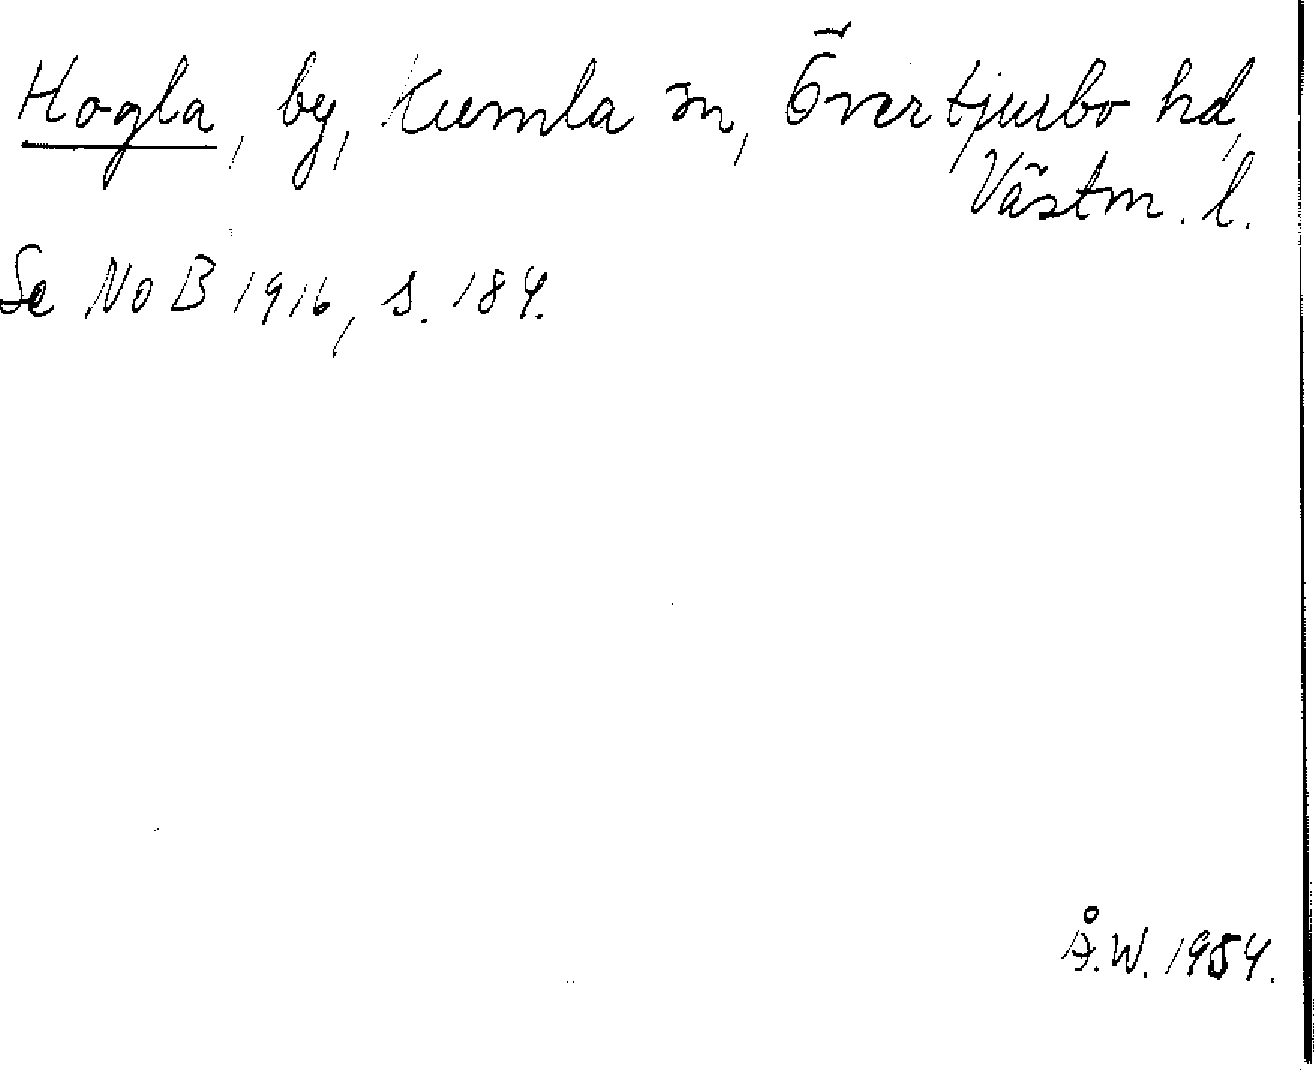 Hogla, by, Kumla sn, Övertjurbo hd,
Västm. l.
Se NoB 1916, s. 184.
Å.W. 1954.